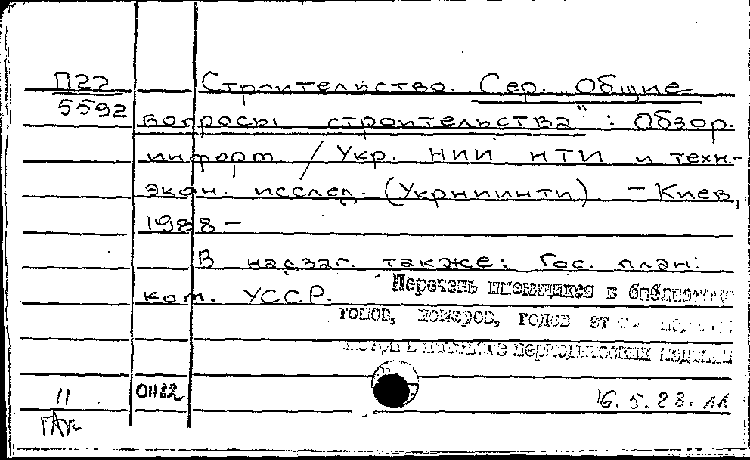 П22 Строительство. Сер. Общие
5592 вопросы строительства" : Обзор.
информ / Укр. НИИ НТИ и техн-
экон. исслед. (УкрНИИНТИ) - Киев,
1988 -
В надзаг. также: Гос. план.
ком. УССР.
Перечень имеющихся в библиотеке
томов, номеров, годов
периодических изданий
11 01122 16.5.88.